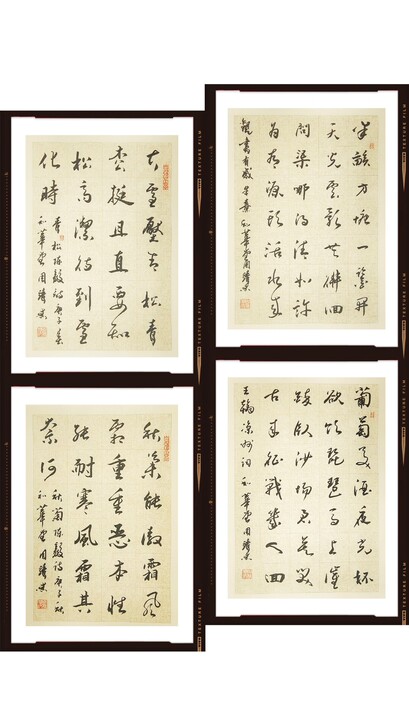 大雪壓青松青
松挺且直要知
松高潔待到雪
化時
青松陳毅詩庚子
和華堂周
半畝方塘一鑒開
天光雲影共徘徊
問渠哪得清如許
為有源頭活水來
觀書有感朱熹和華堂周
秋菊能傲霜風
霜重重惡本性
能耐寒風霜其
奈何
秋菊陳毅詩庚子秋
和華堂周
葡萄美酒夜光杯
欲飲琵琶馬上催
醉臥沙場君莫笑
古來征戰幾人回
王翰涼州詞和華堂周
TEXTURE FILM
TEXTURE FILM
TEXTURE FILM
TEXTURE FILM